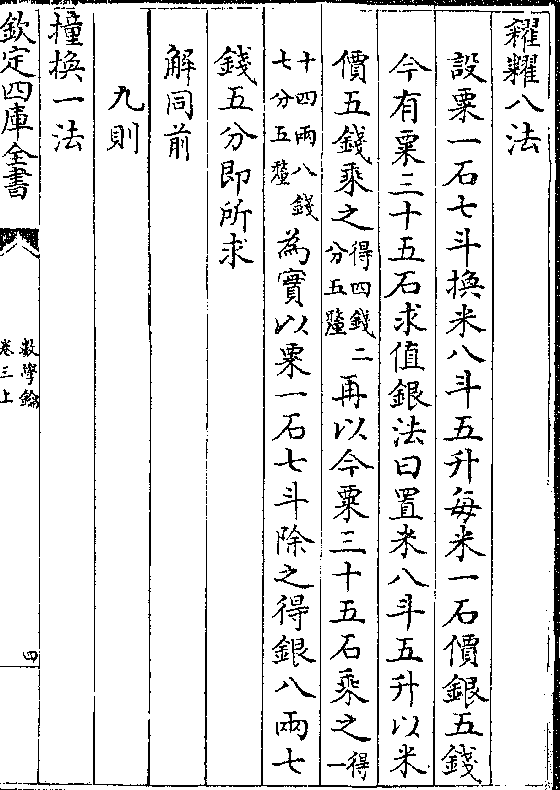 糴糶八法
設粟一石七斗換米八斗五升每米一石價銀五錢
今有粟三十五石求值銀法曰置米八斗五升以米
價五錢乘之得四錢二分五釐再以今粟三十五石乘之得一
十四兩八錢七分五釐為實以粟一石七斗除之得銀八兩七
錢五分即所求
解同前
九則
撞換一法
欽定四庫全書
數學鑰
卷三上
四